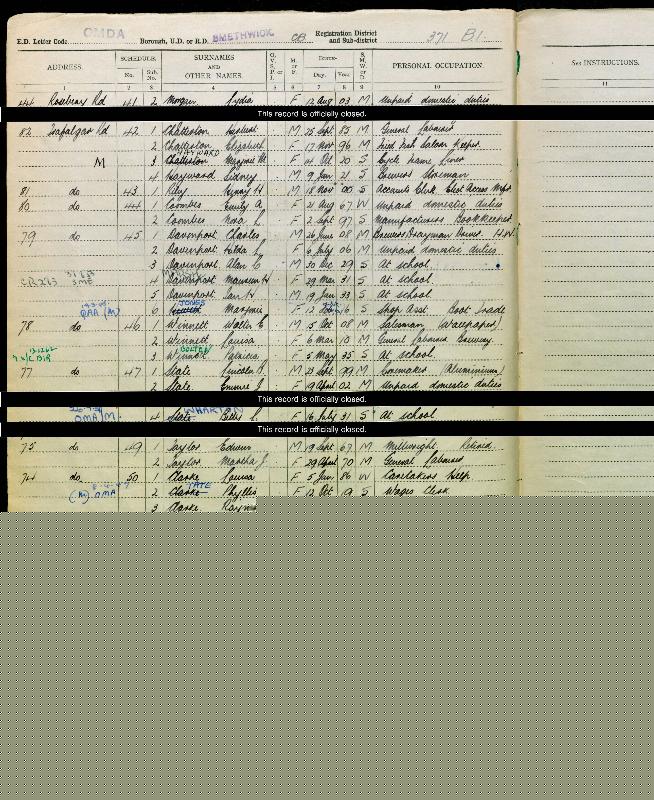 E.D. Letter Code OMDA Borough, U.D. or R.D. SMETHWICK CB Registration District and Sub-district 371 B.1
ADDRESS. SCHEDULE. No. Sub. No. SURNAMES AND OTHER NAMES. O. V. S. P. or I. M. or F. BIRTH— Day. Year. S. M. W. or D. PERSONAL OCCUPATION. See INSTRUCTIONS.
1 2 3 4 5 6 7 8 9 10 11
44 Rosebery Rd 41 2 Morgan Lydia F 12 Aug 03 M Unpaid domestic duties
This record is officially closed.
82 Trafalgar Rd 42 1 Chatterton M 25 Sept 85 M General Labourer
2 Chatterton Elizabeth F 17 Nov 96 M Fried Fish Saloon Keeper
HAYWARD
M 3 Chatterton Marjorie M. F 14 Oct 20 S Cycle Frame Liner
4 Hayward Sidney M 9 Jun 21 S Brewers Storeman
81 do 43 1 Riley Henry H M 18 Nov 00 S Accounts Clerk
80 do 44 1 Coombes Emily A F 21 Aug 67 W Unpaid domestic duties
2 Coombes Nora F 2 Sept 97 S Manufacturers Bookkeeper
79 do 45 1 Davenport Charles M 26 June 08 M Brewers Drayman H.W.
2 Davenport Hilda F 6 July 06 M Unpaid domestic duties
3 Davenport Alan C M 30 Dec 29 S At school
CR283 SME 4 Davenport Maureen H F 29 Mar 31 S At school
5 Davenport Ian H M 19 Jan 33 S At school
JONES
OAA (M) 6 Marjorie F 12 16 S Shop Asst Boot Trade
78 do 46 1 Winnett Walter E M 5 Oct 08 M Salesman (Wallpaper)
2 Winnett Louisa F 6 Mar 10 M General Labourer Brewery
BOLTON
3 Winnett Patricia F 5 May 35 S At school
77 do 47 1 Slate Lincoln M 23 Sept 99 M (Aluminium)
2 Slate Emmie J F 19 April 02 M Unpaid domestic duties
This record is officially closed.
WHARTON
OMA (M) 4 Slate Betty F 16 July 31 S At school
This record is officially closed.
75 do 49 1 Taylor Edwin M 19 Sept 67 M Millwright Retired
2 Taylor Martha J. F 29 April 70 M General Labourer
74 do 50 1 Clarke Louisa F 5 Jun 86 W Caretakers Help
TATE
(M) OMA 2 Clarke Phyllis F 12 Oct 19 S Wages Clerk
3 Clarke